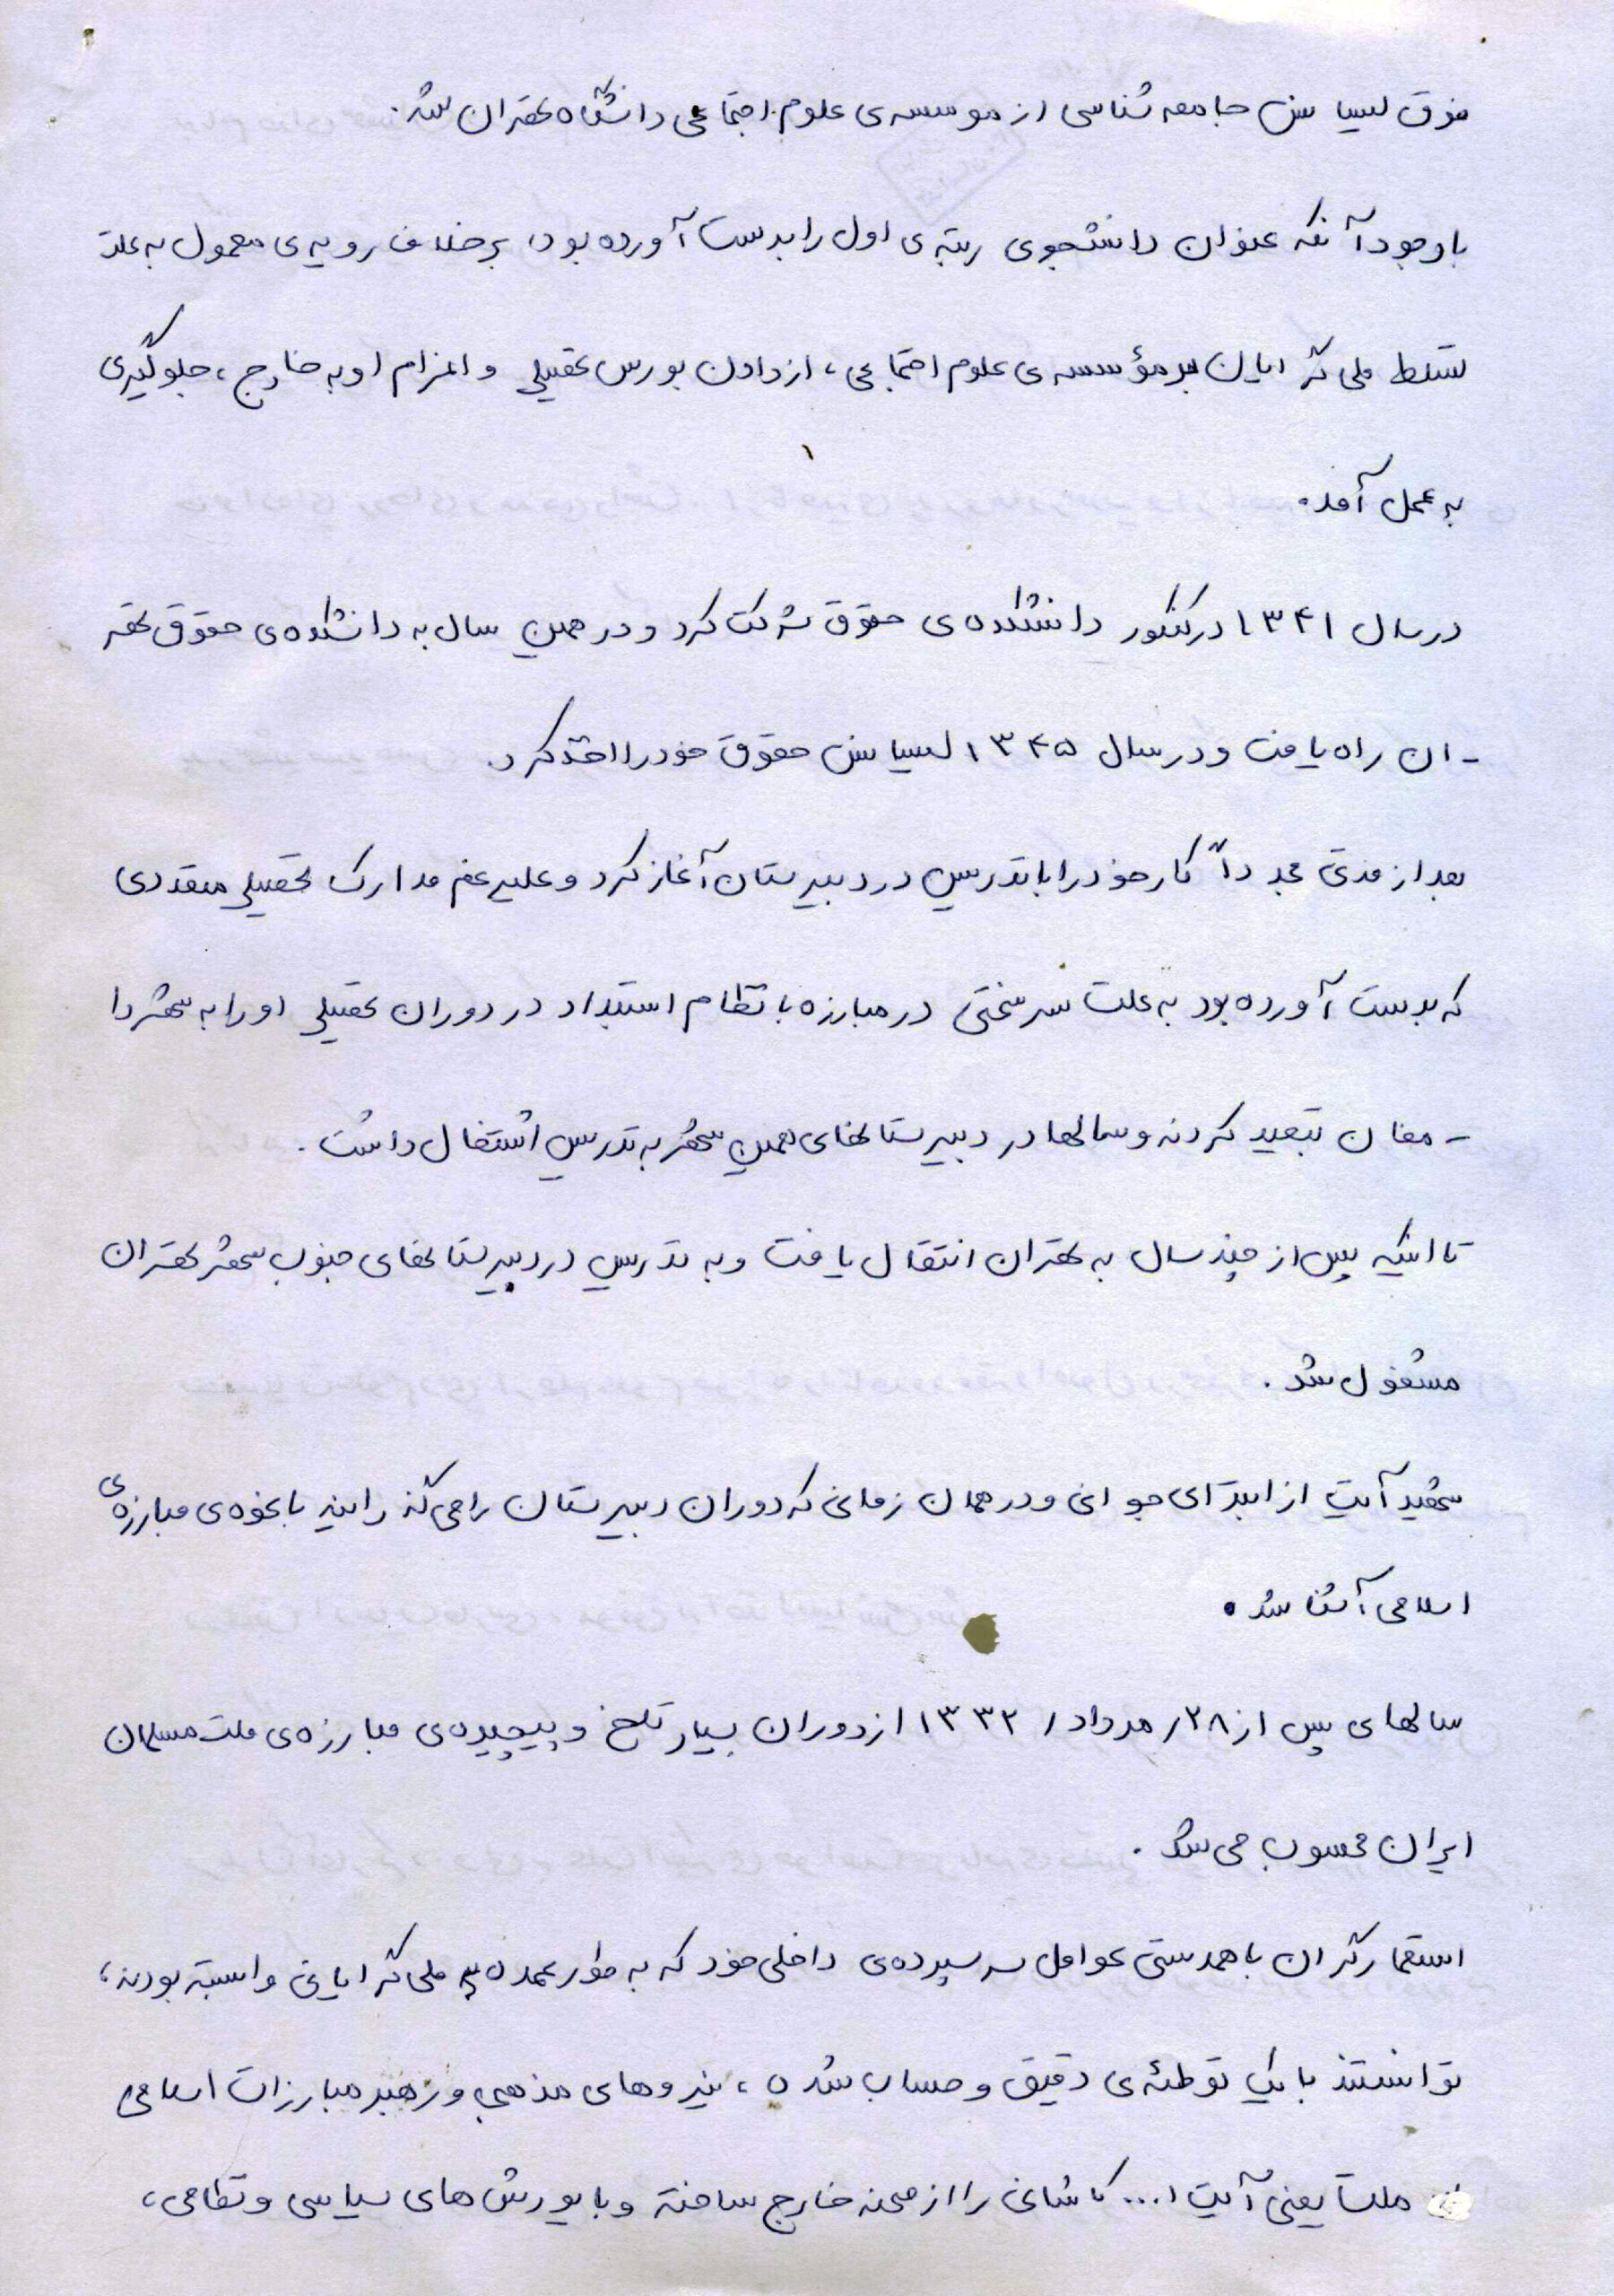 فوق لیسانس جامعه شناسی از موسسه‌ی علوم اجتماعی دانشگاه تهران شد.
باوجود آنکه عنوان دانشجوی رتبه‌ی اول را بدست آورده بود، برخلاف رویه‌ی معمول به علت
تسلط ملی گرایان بر مؤسسه‌ی علوم اجتماعی، از دادن بورس تحصیلی و اعزام او به خارج، جلوگیری
به عمل آمد.
در سال ۱۳۴۱ در کنکور دانشکده‌ی حقوق شرکت کرد و در همین سال به دانشکده‌ی حقوق تهر
- ان راه یافت و در سال ۱۳۴۵ لیسانس حقوق خود را اخذ کرد.
بعد از مدتی مجدداً کار خود را با تدریس در دبیرستان آغاز کرد و علیرغم مدارک تحصیلی متعددی
که بدست آورده بود به علت سرسختی در مبارزه با نظام استبداد در دوران تحصیلی او را به شهر دا
- مغان تبعید کردند و سالها در دبیرستانهای همین شهر به تدریس اشتغال داشت.
تا اینکه پس از چند سال به تهران انتقال یافت و به تدریس در دبیرستانهای جنوب شهر تهران
مشغول شد.
شهید آیت از ابتدای جوانی و در همان زمانی که دوران دبیرستان را می گذرانید با نحوه‌ی مبارزه‌ی
اسلامی آشنا شد.
سالهای پس از ۲۸ / مرداد / ۱۳۳۲ از دوران بسیار تلخ و پیچیده‌ی مبارزه‌ی ملت مسلمان
ایران محسوب می شد.
استعمارگران با همدستی عوامل سرسپرده‌ی داخلی خود که به طور عمده به ملی گرایان وابسته بودند،
توانستند با یک توطئه‌ی دقیق و حساب شده، نیروهای مذهبی و رهبر مبارزات اسلامی
ملت یعنی آیت ا... کاشانی را از صحنه خارج ساخته و با یورش های سیاسی و نظامی،